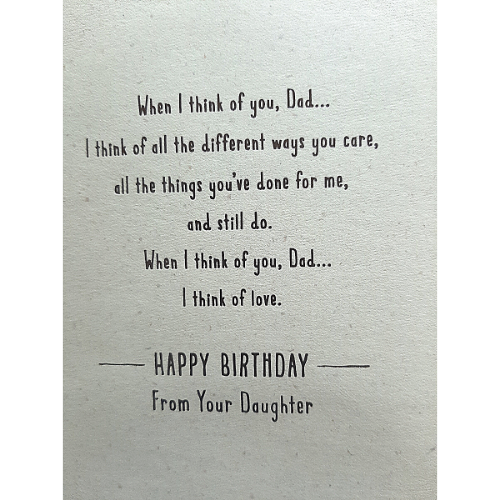 When I think of you, Dad...
I think of all the different ways you care,
all the things you've done for me,
and still do.
When I think of you, Dad...
I think of love.
HAPPY BIRTHDAY
From Your Daughter